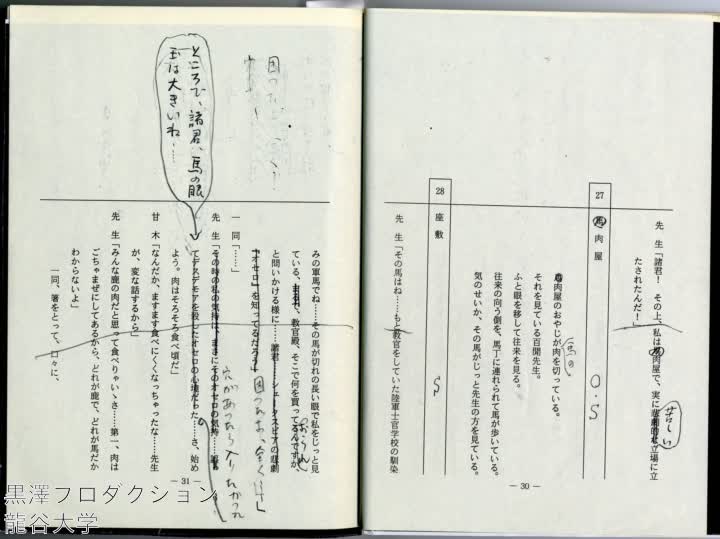 先 生「諸君! その上、私は馬肉屋で、実に悲劇的な立場に立
たされたんだ!」
苦しい
27 馬 肉 屋
0.5
馬肉屋のおやじが肉を切っている。
馬の
それを見ている百閒先生。
ふと眼を移して往来を見る。
往来の向う側を、馬丁に連れられて馬が歩いている。
気のせいか、その馬がじっと先生の方を見ている。
28 座 敷
先 生「その馬はね……もと教官をしていた陸軍士官学校の馴染
― 30 ―
みの軍馬でね……その馬が切れの長い眼で私をじっと見
ている、教官殿、そこで何を買ってるんですか、
と問いかける様に……諸君……シェークスピアの悲劇
『オセロ』を知ってるだろう」
一 同「……」
先 生「その時の私の気持は、まさにそのオセロの気持……
てデスデモアを殺したオセロの心境だった……さ、始め
よう。肉はそろそろ食べ頃だ」
甘 木「なんだか、ますます食べにくくなっちゃったな……先生
が、変な話するから」
先 生「みんな鹿の肉だと思って食べりゃいゝさ……第一、肉は
ごちゃまぜにしてあるから、どれが鹿で、どれが馬だか
わからないよ」
一同、箸をとって、口々に、
― 31 ―
ところで、諸君、馬の眼
玉は大きいね……
穴があったら入りたかった
黒澤プロダクション
龍谷大学